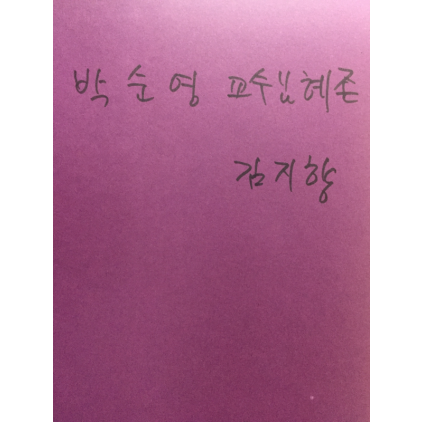 박순영 교수님 혜존
김지향